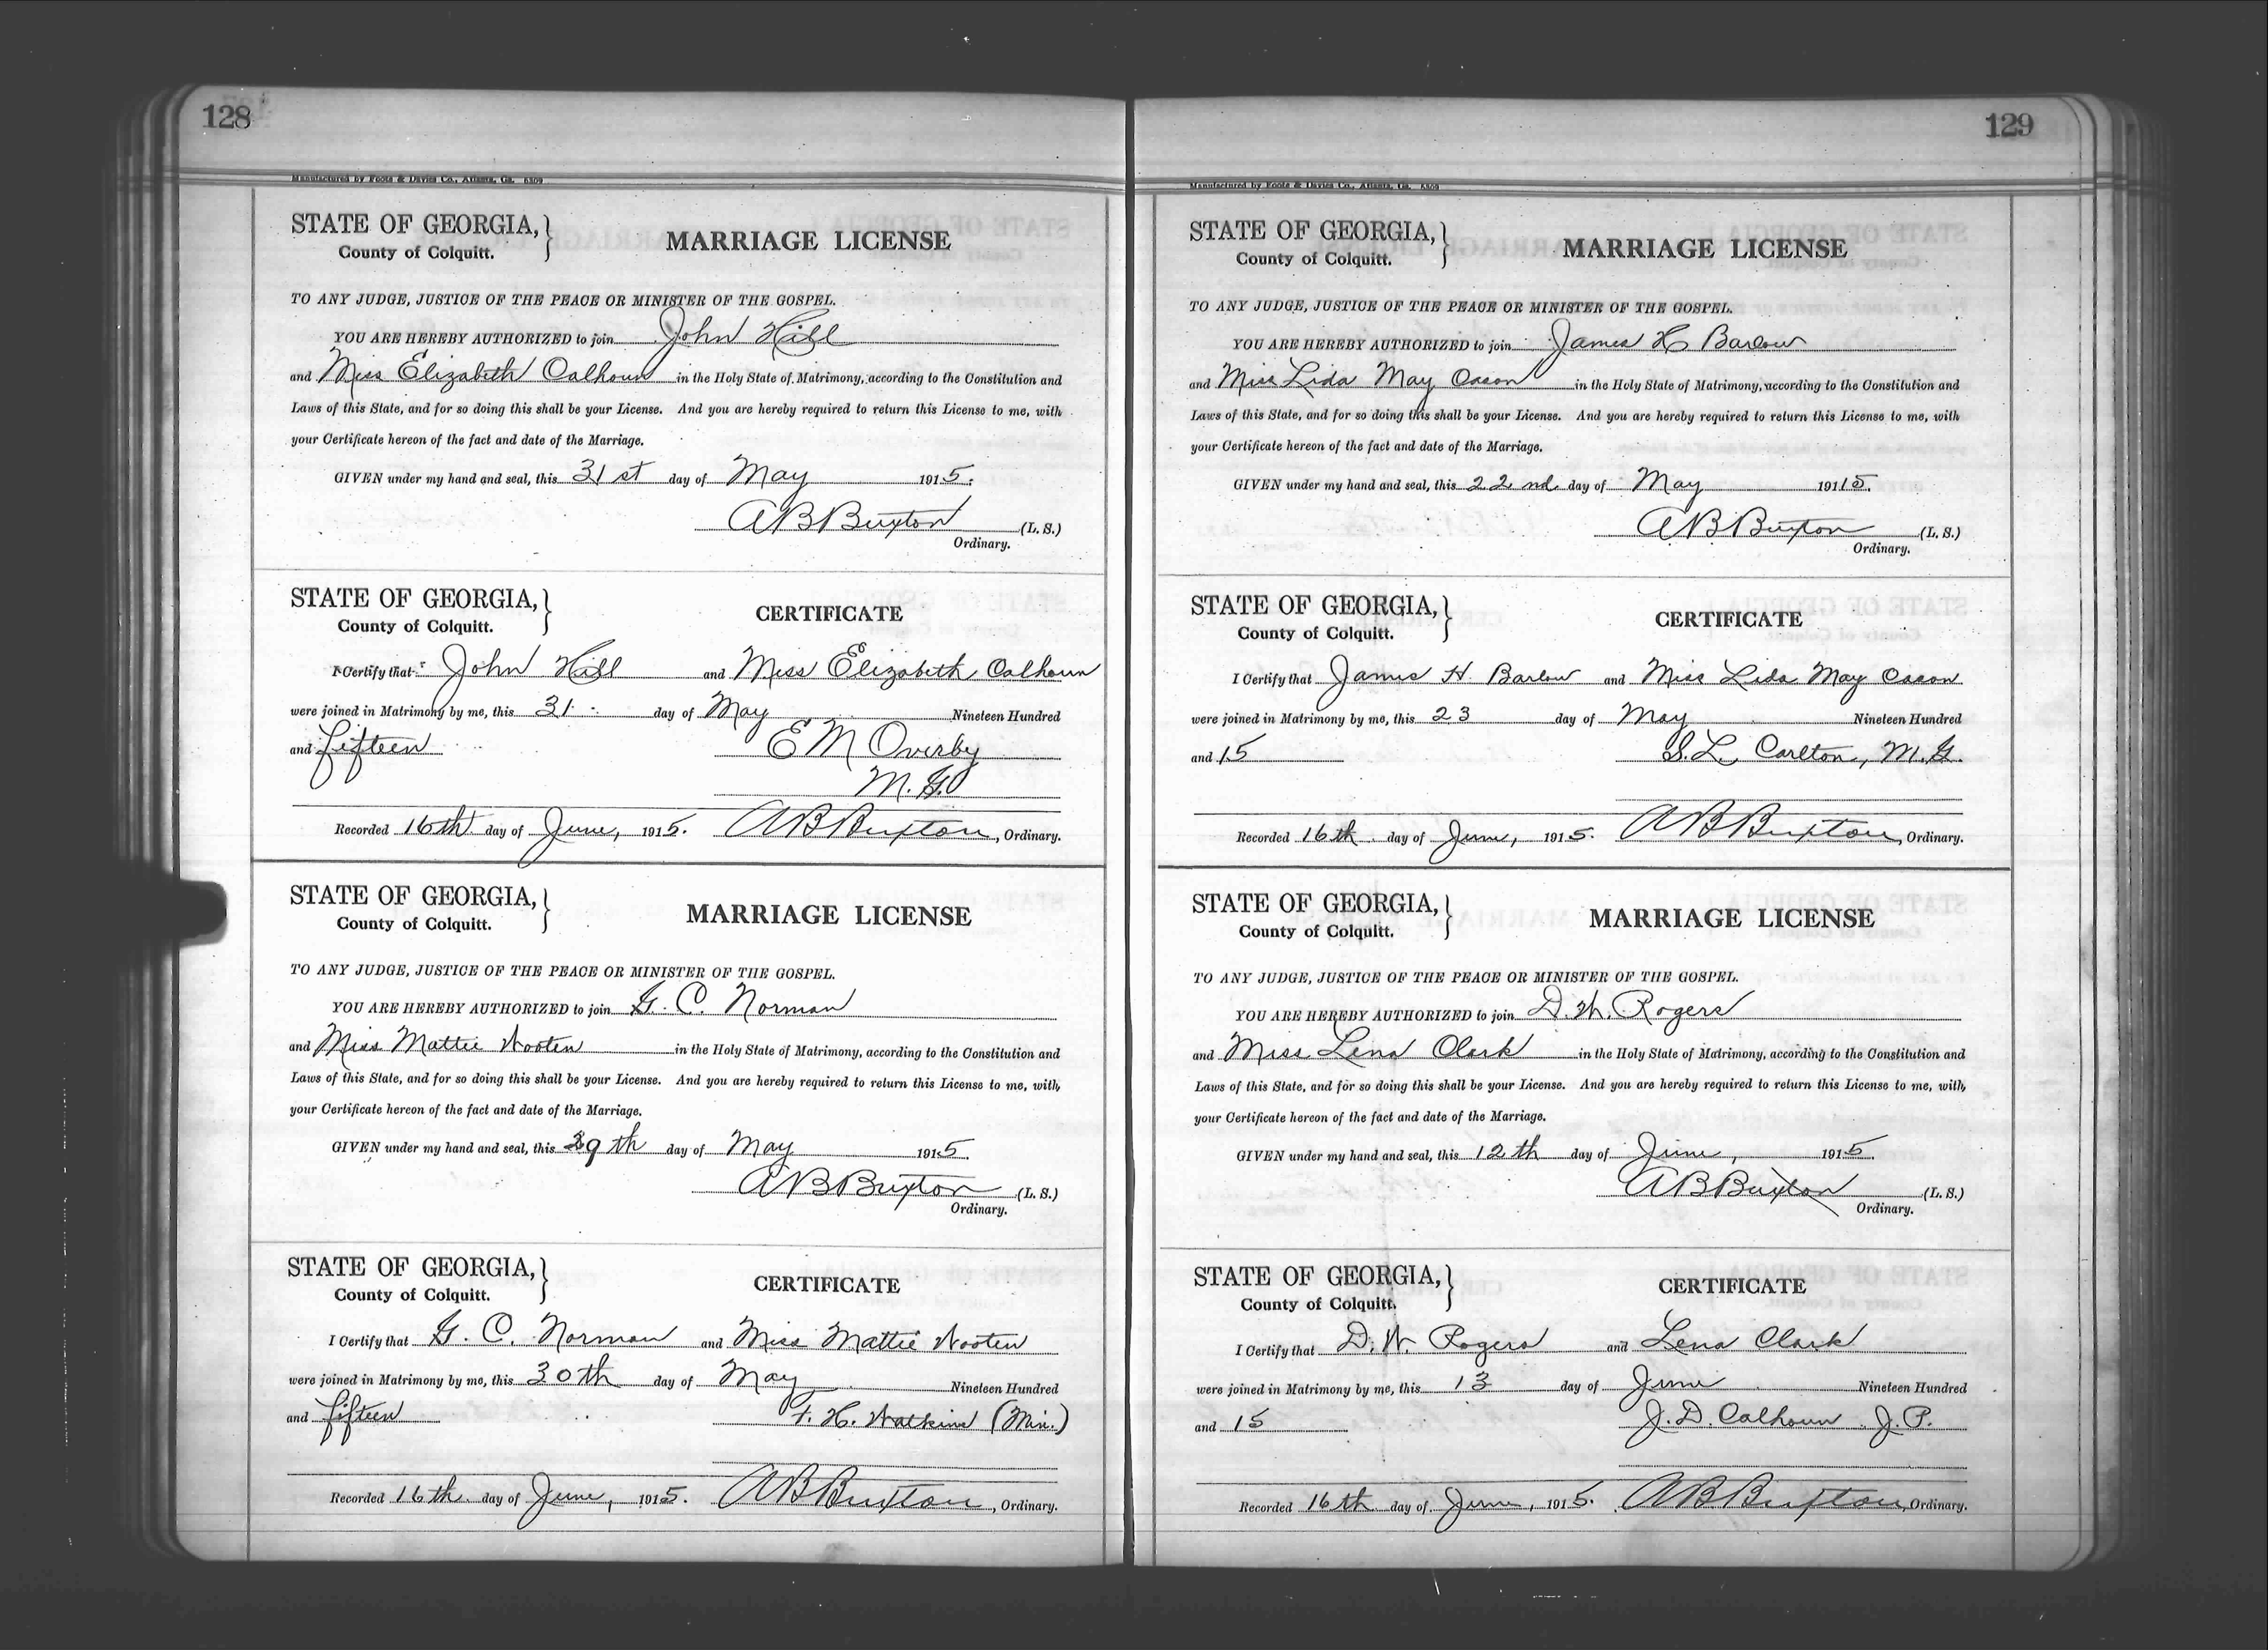 128
Manufactured by Foote & Davies Co., Atlanta, Ga.
STATE OF GEORGIA,
County of Colquitt.
MARRIAGE LICENSE
TO ANY JUDGE, JUSTICE OF THE PEACE OR MINISTER OF THE GOSPEL.
YOU ARE HEREBY AUTHORIZED to join John Hill
and Miss Elizabeth Calhoun in the Holy State of Matrimony, according to the Constitution and
Laws of this State, and for so doing this shall be your License. And you are hereby required to return this License to me, with
your Certificate hereon of the fact and date of the Marriage.
GIVEN under my hand and seal, this 31st day of May 1915.
A B Buxton (L. S.)
Ordinary.
STATE OF GEORGIA,
County of Colquitt.
CERTIFICATE
I Certify that John Hill and Miss Elizabeth Calhoun
were joined in Matrimony by me, this 31 day of May Nineteen Hundred
and fifteen E M Overby
M. G.
Recorded 16th day of June, 1915. A B Buxton, Ordinary.
STATE OF GEORGIA,
County of Colquitt.
MARRIAGE LICENSE
TO ANY JUDGE, JUSTICE OF THE PEACE OR MINISTER OF THE GOSPEL.
YOU ARE HEREBY AUTHORIZED to join G. C. Norman
and Miss Mattie Wooten in the Holy State of Matrimony, according to the Constitution and
Laws of this State, and for so doing this shall be your License. And you are hereby required to return this License to me, with
your Certificate hereon of the fact and date of the Marriage.
GIVEN under my hand and seal, this 29th day of May 1915.
A B Buxton (L. S.)
Ordinary.
STATE OF GEORGIA,
County of Colquitt.
CERTIFICATE
I Certify that G. C. Norman and Miss Mattie Wooten
were joined in Matrimony by me, this 30th day of May Nineteen Hundred
and fifteen F. H. Watkins (Min.)
Recorded 16th day of June, 1915. A B Buxton, Ordinary.
129
Manufactured by Foote & Davies Co., Atlanta, Ga.
STATE OF GEORGIA,
County of Colquitt.
MARRIAGE LICENSE
TO ANY JUDGE, JUSTICE OF THE PEACE OR MINISTER OF THE GOSPEL.
YOU ARE HEREBY AUTHORIZED to join James H Barlow
and Miss Lida May Cason in the Holy State of Matrimony, according to the Constitution and
Laws of this State, and for so doing this shall be your License. And you are hereby required to return this License to me, with
your Certificate hereon of the fact and date of the Marriage.
GIVEN under my hand and seal, this 22nd day of May 19115.
A B Buxton (L. S.)
Ordinary.
STATE OF GEORGIA,
County of Colquitt.
CERTIFICATE
I Certify that James H. Barlow and Miss Lida May Cason
were joined in Matrimony by me, this 23 day of May Nineteen Hundred
and 15 S. L. Carlton, M. G.
Recorded 16th day of June, 1915. A B Buxton, Ordinary.
STATE OF GEORGIA,
County of Colquitt.
MARRIAGE LICENSE
TO ANY JUDGE, JUSTICE OF THE PEACE OR MINISTER OF THE GOSPEL.
YOU ARE HEREBY AUTHORIZED to join D. W. Rogers
and Miss Lena Clark in the Holy State of Matrimony, according to the Constitution and
Laws of this State, and for so doing this shall be your License. And you are hereby required to return this License to me, with
your Certificate hereon of the fact and date of the Marriage.
GIVEN under my hand and seal, this 12th day of June, 1915.
A B Buxton (L. S.)
Ordinary.
STATE OF GEORGIA,
County of Colquitt.
CERTIFICATE
I Certify that D. W. Rogers and Lena Clark
were joined in Matrimony by me, this 13 day of June Nineteen Hundred
and 15 J. D. Calhoun J. P.
Recorded 16th day of June, 1915. A B Buxton, Ordinary.